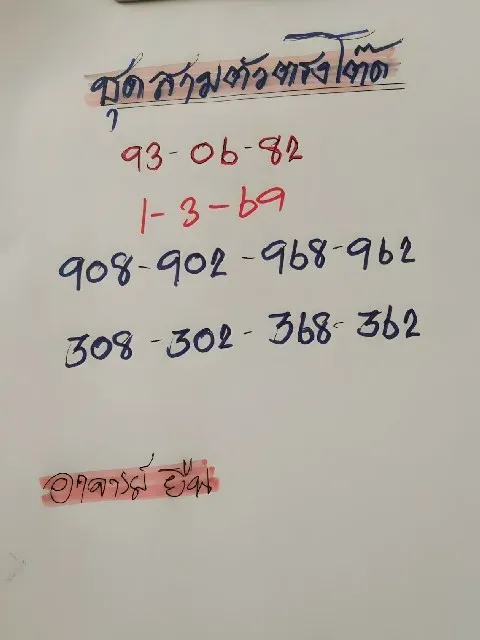 ชุดสามตัวตรงโต๊ด
93-06-82
1-3-69
908-902-968-962
308-302-368-362
อาจารย์